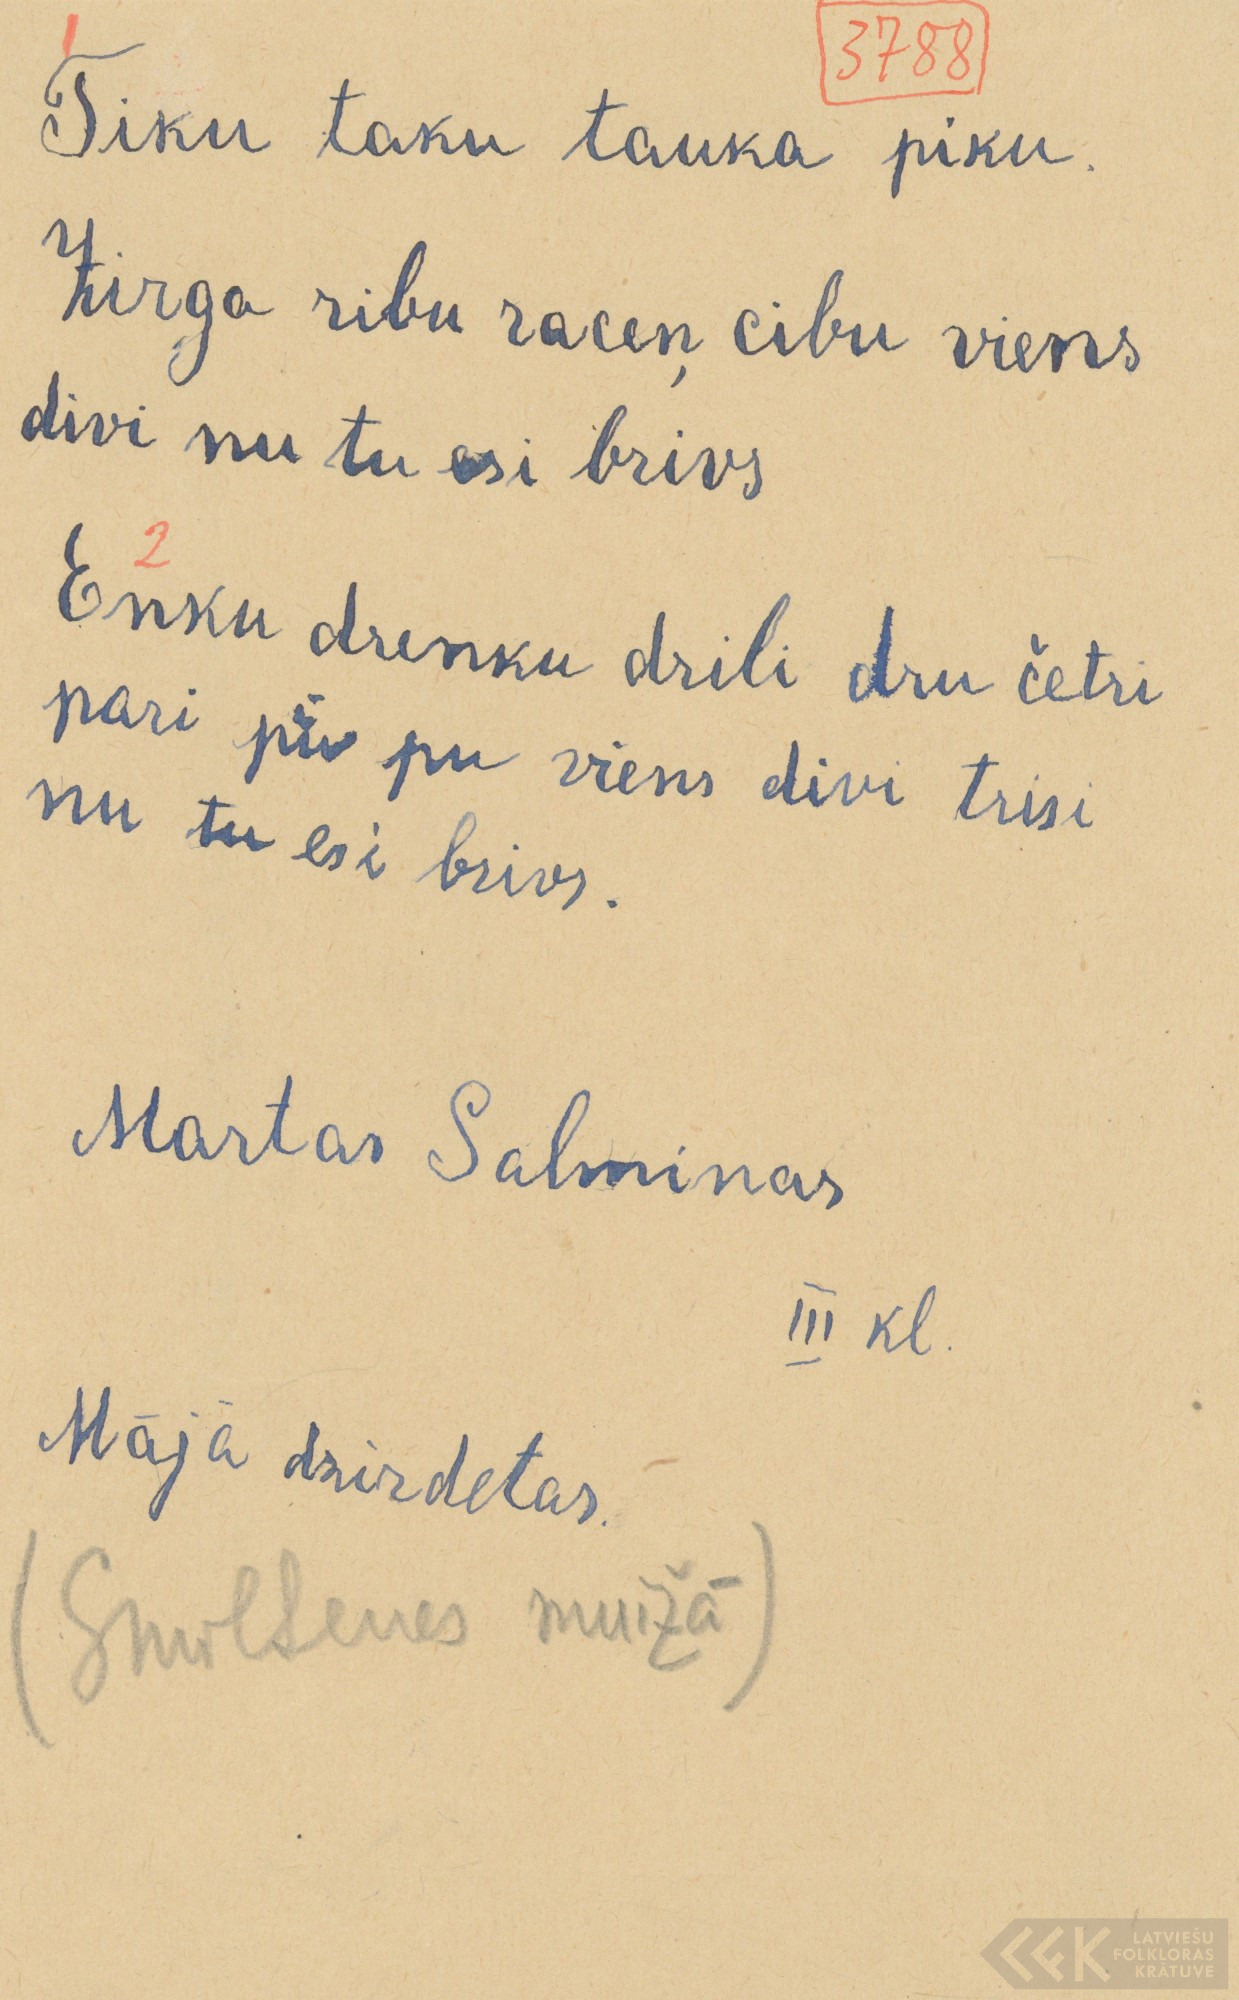 3788
1
Tiku taku tauka piku.
Zirga ribu raceņ cibu viens
divi nu tu esi brivs
2
Enku drenku drili dru četri
pari pu viens divi trisi
nu tu esi brivs.
Martas Salminas
III kl.
Mājā dzirdetas.
(Smiltenes muižā)
LATVIEŠU
FOLKLORAS
KRĀTUVE